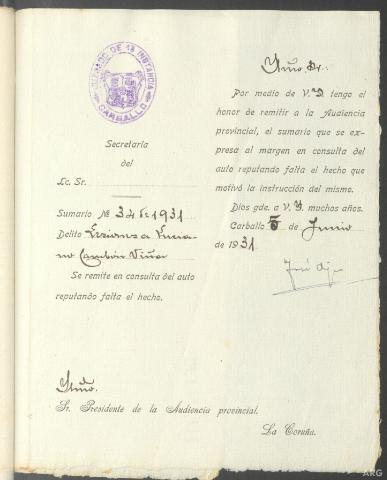 JUZGADO DE 1ª INSTANCIA
CARBALLO
Secretaría
del
Lc. Sr.
Sumario Nº 34 de 1931
Delito Lesiones a
Cambón Viña
Se remite en consulta del auto
reputando falta el hecho.
Iltmo. Sr.
Por medio de V. I. tengo el
honor de remitir a la Audiencia
provincial, el sumario que se ex-
presa al margen en consulta del
auto reputando falta el hecho que
motivó la instrucción del mismo.
Dios gde. a V. I. muchos años.
Carballo 5 de Junio
de 1931.
José
Iltmo.
Sr. Presidente de la Audiencia provincial.
La Coruña.
ARG